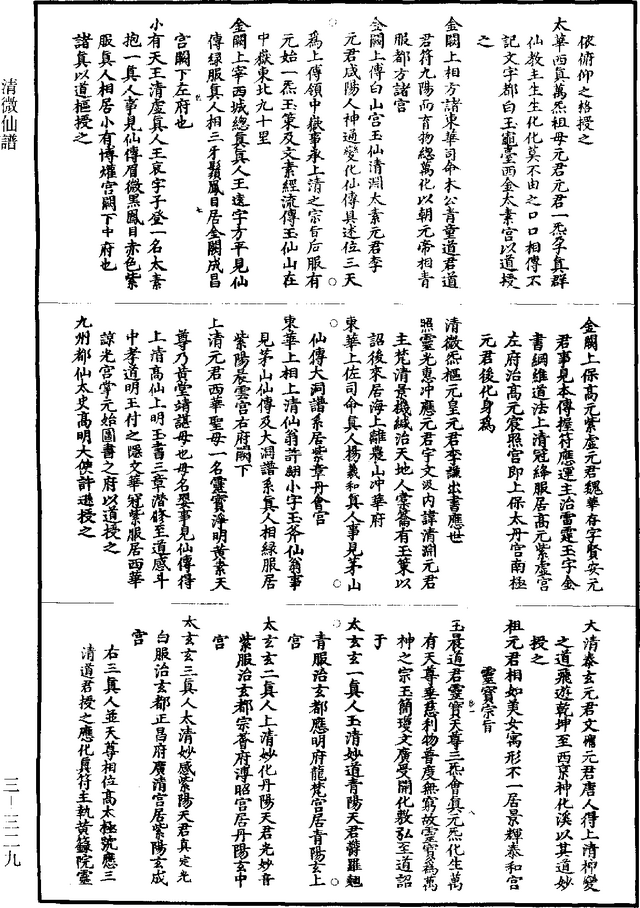 清微仙譜
三—三二九
依俯仰之格授之
太華西真萬炁祖母元君元君一炁孕真群
仙教主生生化化莫不由之口口相傳不
記文字都白玉龜臺西金太素宮以道授
之
金闕上相方諸東華司命木公青童道君道
君符九陽而育物總萬化以朝元帝相青
服都方諸宮
金闕上傅白山宮玉仙清淵太素元君李
元君咸陽人神通變化仙傳具述位三天
爲上傅領中嶽事承上清之宗旨后服有
元始一炁玉策及文素經流傳玉仙山在
中嶽東北九十里
金闕上宰西城總真真人王遠字方平見仙
傳緑服真人相三牙鬚鳳目居金闕成昌
宮闕下左府也
小有天王清虛真人王哀字子登一名太素
抱一真人事見仙傳眉微黑鳳目赤色紫
服真人相居小有博耀宮闕下中府也
諸真以道樞授之
金闕上保高元紫虛元君魏華存字賢安元
君事見本傳握符應運主治雷霆玉字金
書綱維道法上清冠絳服居高元紫虛宮
左府治高元宸照宮即上保太丹宮南極
元君後化身爲
清微炁樞元皇元君李諱出書應世
照靈光惠沖應元君宇文汲内諱清淵元君
主梵清景機緘治天地人棠籥有玉策以
詔後來居海上離農山沖華府
東華上佐司命真人楊羲和真人事見茅山
仙傳大洞譜系居紫章丹會宮
東華上相上清仙翁許翽小字玉斧仙翁事
見茅山仙傳及大洞譜系真人相緑服居
紫陽晨雲宮右府闕下
上清元君西華聖母一名靈寶淨明黃素天
尊乃黃堂靖諶母也母名嬰事見仙傳得
上清高仙上明玉書三章潛修至道感斗
中孝道明王付之隱文華冠紫服居西華
諒光宮掌元始圖書之府以道授之
九州都仙太史高明大使許遜授之
大清泰玄元君文㜮元君唐人得上清抑變
之道飛遊乾坤至西京神化溪以其道妙
授之
祖元君相如美女寓形不一居景輝泰和宮
靈寶宗旨
玉晨道君靈寶天尊三炁會真元炁化生萬
有天尊垂慈利物普度無窮故靈寶爲萬
神之宗玉簡瓊文廣受開化教弘至道詔
于
太玄玄一真人玉清妙道青陽天君鬱羅翹
青服治玄都應明府龍梵宮居青陽玄上
宮
太玄玄二真人上清妙化丹陽天君光妙音
紫服治玄都宗蒼府溥昭宮居丹陽玄中
宮
太玄玄三真人太清妙感紫陽天君真定光
白服治玄都正昌府廣清宮居紫陽玄成
宮
右三真人並天尊相位高太極號應三
清道君授之應化真符主執黃籙院靈